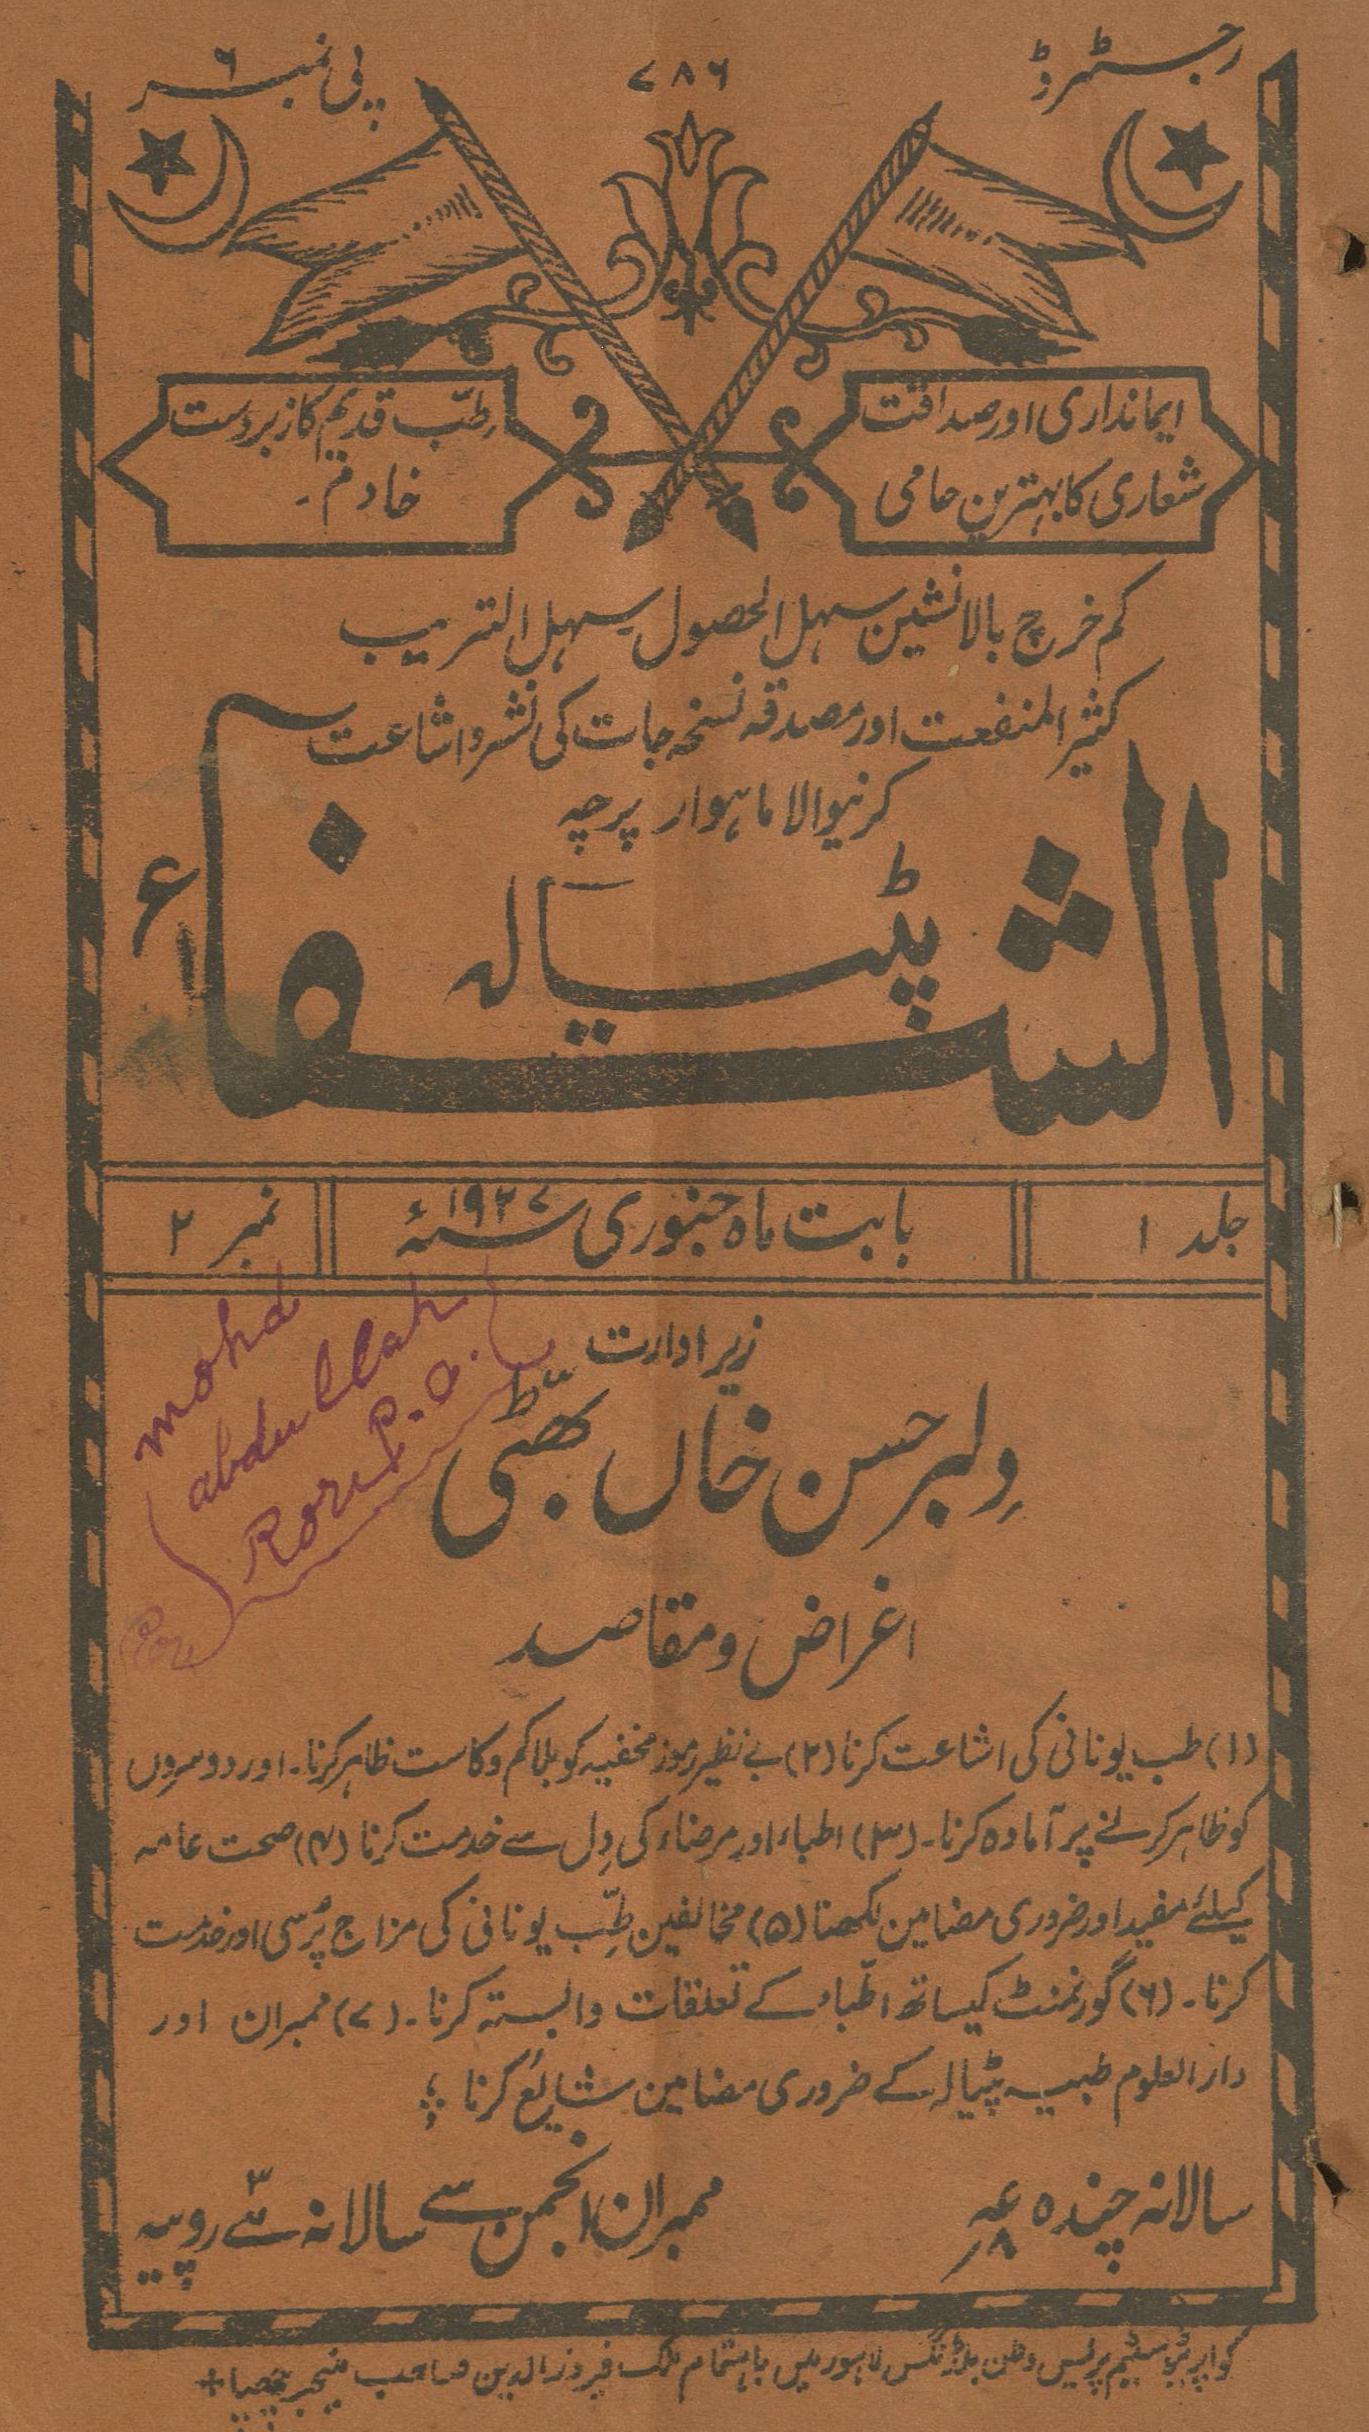 رجسٹرڈ
۷۸۶
پی نمبر ۶
ایمانداری اور صداقت
شعاری کا بہترین حامی
طبّ قدیم کا زبردست
خادم۔
کم خرچ بالا نشین سہل الحصول سہل الترکیب
کثیر المنفعت اور مصدقہ نسخہ جات کی نشر و اشاعت
کرنیوالا ماہوار پرچہ
الشفاء
پٹیالہ
جلد ۱
بابت ماہ جنوری ۱۹۲۷ سنہء
نمبر ۲
mohd
abdullah
Rori P.O.
زیر ادارت
دِلبر حسن خاں بھٹّی
اغراض و مقاصد
(۱) طب یونانی کی اشاعت کرنا (۲) بے نظیر رموز مخفیہ کو بلا کم و کاست ظاہر کرنا۔ اور دوسروں
کو ظاہر کرنے پر آمادہ کرنا۔ (۳) اطباء اور مرضاء کی دِل سے خدمت کرنا (۴) صحت عامہ
کیلئے مفید اور ضروری مضامین لکھنا (۵) مخالفین طِبّ یونانی کی مزاج پُرسی اور خدمت
کرنا۔ (۶) گورنمنٹ کیساتھ اطّباء کے تعلقات وابستہ کرنا۔ (۷) ممبران اور
دارالعلوم طبیہ پٹیالہ کے ضروری مضامین شایٔع کرنا
سالانہ چندہ
ممبران انجمن سے سالانہ ۳ روپیہ
کواپریٹو سٹیم پریس وطن بلڈنگس لاہور میں باہتمام ملک فیروز الدین صاحب منیجر چھپا +